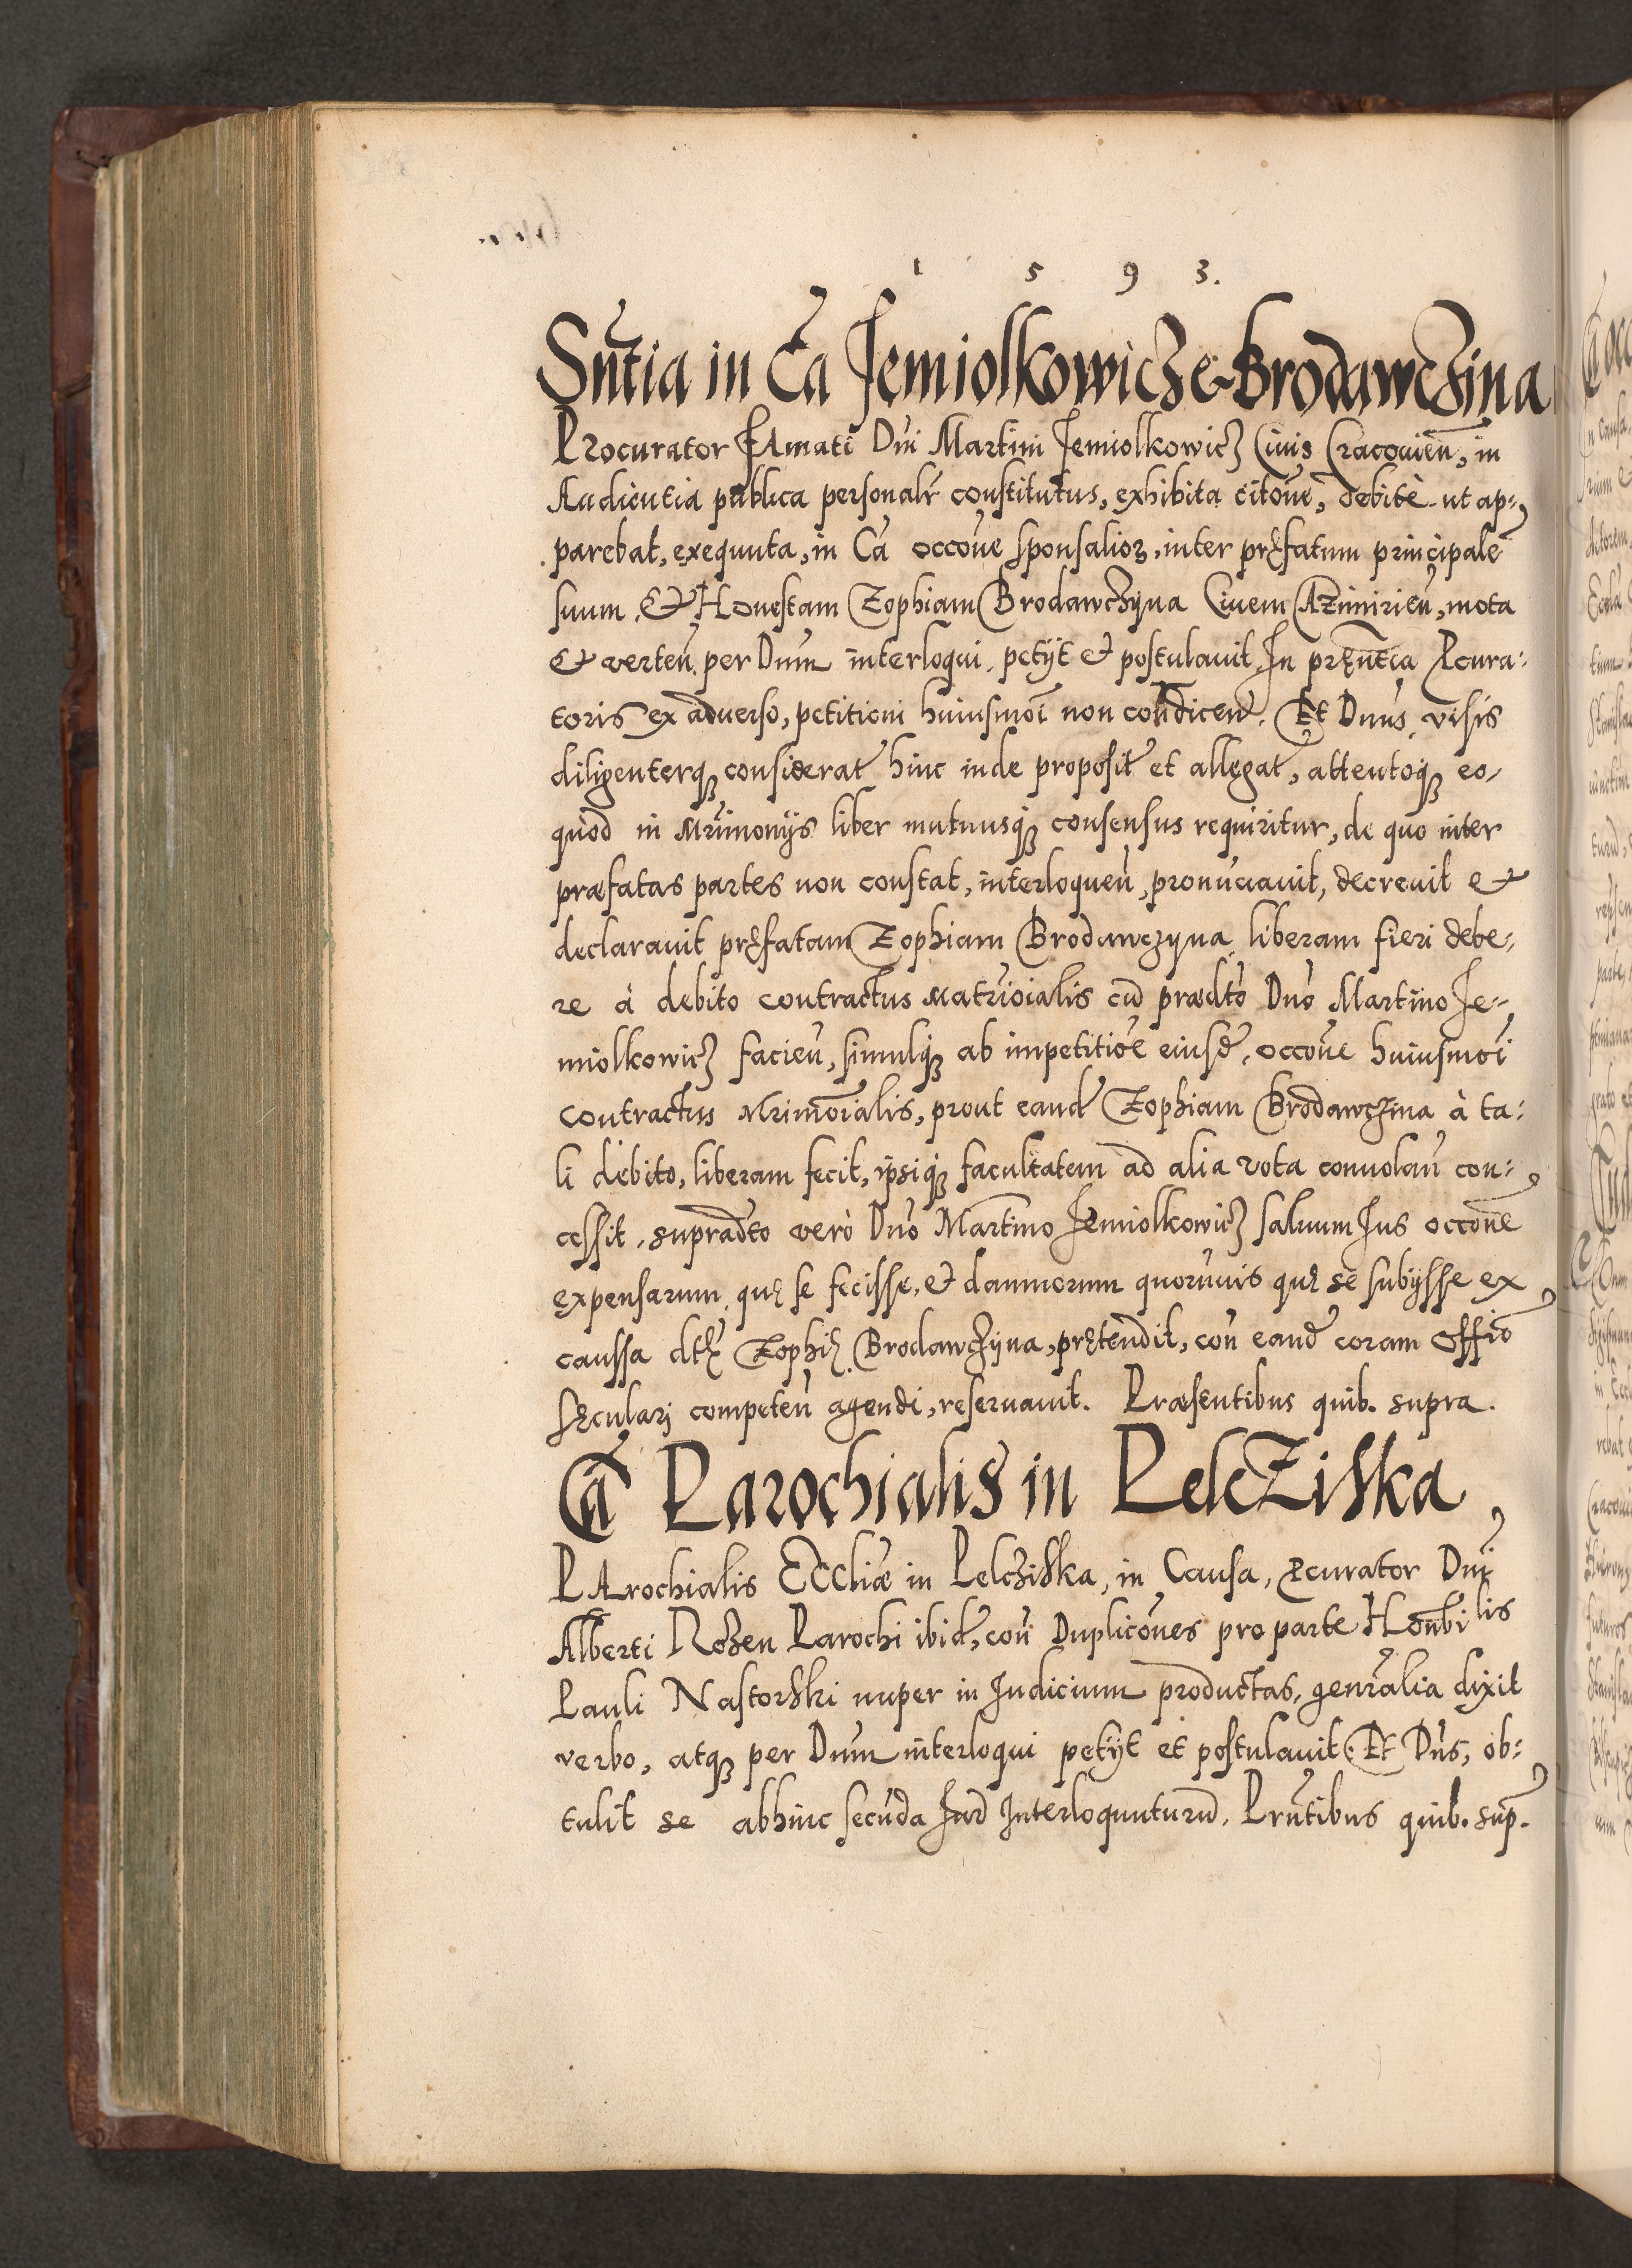 1 5 9 3.
Sn̄tia in Cā Jemiolkowicz & Brodawczina
Procurator FAmati Dn̄i Martini Jemiolkowicz Ciuis Cracouien̄, in
Audientia publica personalr̄ constitutus, exhibita citōne, debitè ut ap-
parebat, exequuta, in Cā occōne sponsalioꝝ, inter prȩfatum principalē
suum & Honestam Zophiam Brodawczyna Ciuem CAzimirien̄, mota
& verten̄ per Dnum interloqui petÿt et postulauit. In prȩn̄tia Pcura-
toris ex aduerso, petitioni huiusmōi non condicen̄. Et Dnus, visis
diligenterqꝫ considerat̄ hinc inde proposit̄ et allegat̄, attentoqꝫ eo,
quòd in Mr̄imonÿs liber mutuusqꝫ consensus requiritur, de quo inter
præfatas partes non constat, interloquen̄, pronūciauit, decreuit &
declarauit prȩfatam Zophiam Brodawczyna liberam fieri debe-
re à debito contractus Matrīoialis cū prædt̄o Dn̄o Martino Je-
miolkowicz facien̄, simulqꝫ ab impetitiōe eiusd̄, occōne huiusmōi
contractus Mrimōialis, prout eand̄ Zophiam Brodawczina à ta-
li debito, liberam fecit, ipsiqꝫ facultatem ad alia vota conuolan̄ con-
cessit, supradt̄o verò Dn̄o Martino Jemiolkowicz saluum Jus occōne
expensarum quȩ se fecisse, et damnorum quorumuis quȩ se subÿsse ex
caussa dt̄ȩ Zophiȩ Brodawczyna, prȩtendit, con̄ eand̄ coram Offiō
sȩculari competen̄ agendi, reseruauit. Præsentibus quib. supra.
Cā Parochialis in Pelcziska
PArochialis Eccliæ in Pelcziska, in Causa, Pcurator Dn̄i
Alberti Rozen Parochi ibid̄, con̄ Duplicōnes pro parte Honbilis
Pauli Nastorski nuper in Judicium productas, genr̄alia dixit
verbo, atqꝫ per Dnum interloqui petÿt et postulauit. Et Dn̄s, ob-
tulit se abhinc secūda Jurd̄ Interloquuturū. Prn̄tibus quib. sup̄.